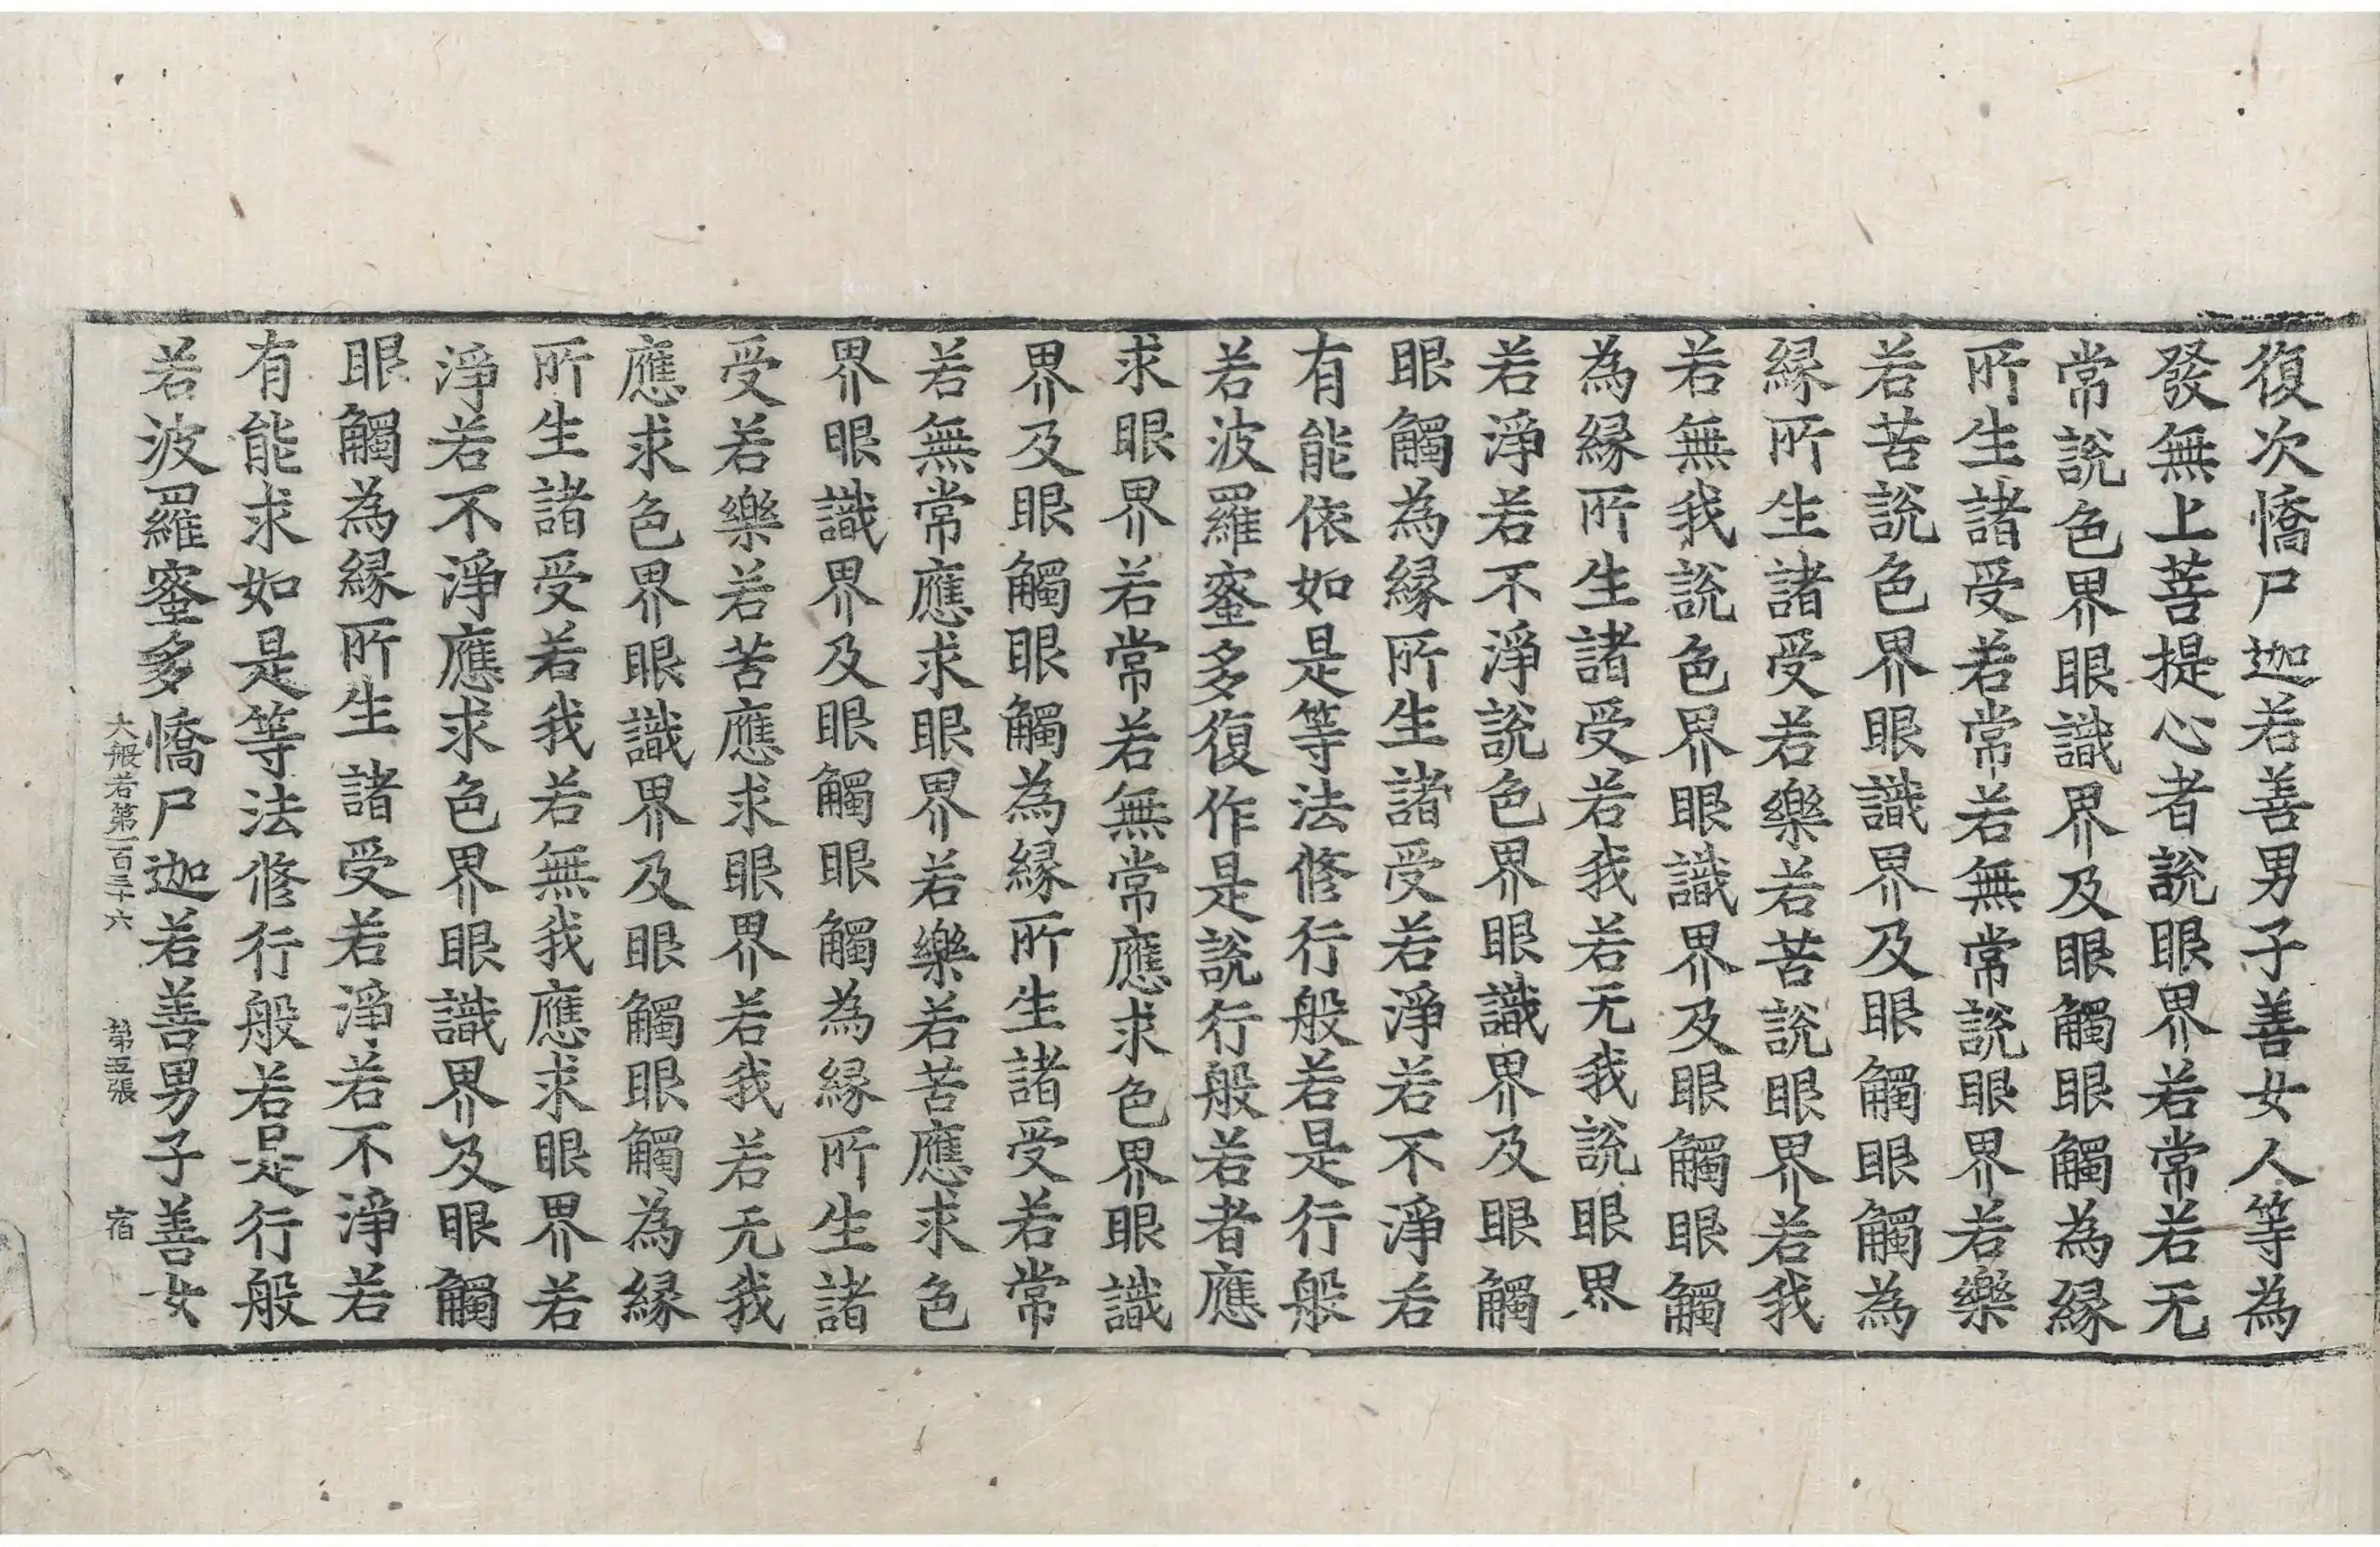 復次憍尸迦若善男子善女人等為
發無上菩提心者說眼界若常若无
常說色界眼識界及眼觸眼觸為緣
所生諸受若常若無常說眼界若樂
若苦說色界眼識界及眼觸眼觸為
緣所生諸受若樂若苦說眼界若我
若無我說色界眼識界及眼觸眼觸
為緣所生諸受若我若无我說眼界
若淨若不淨說色界眼識界及眼觸
眼觸為緣所生諸受若淨若不淨若
有能依如是等法修行般若是行般
若波羅蜜多復作是說行般若者應
求眼界若常若無常應求色界眼識
界及眼觸眼觸為緣所生諸受若常
若無常應求眼界若樂若苦應求色
界眼識界及眼觸眼觸為緣所生諸
受若樂若苦應求眼界若我若无我
應求色界眼識界及眼觸眼觸為緣
所生諸受若我若無我應求眼界若
淨若不淨應求色界眼識界及眼觸
眼觸為緣所生諸受若淨若不淨若
有能求如是等法修行般若是行般
若波羅蜜多憍尸迦若善男子善女
大般若第一百三十六 第五張 宿